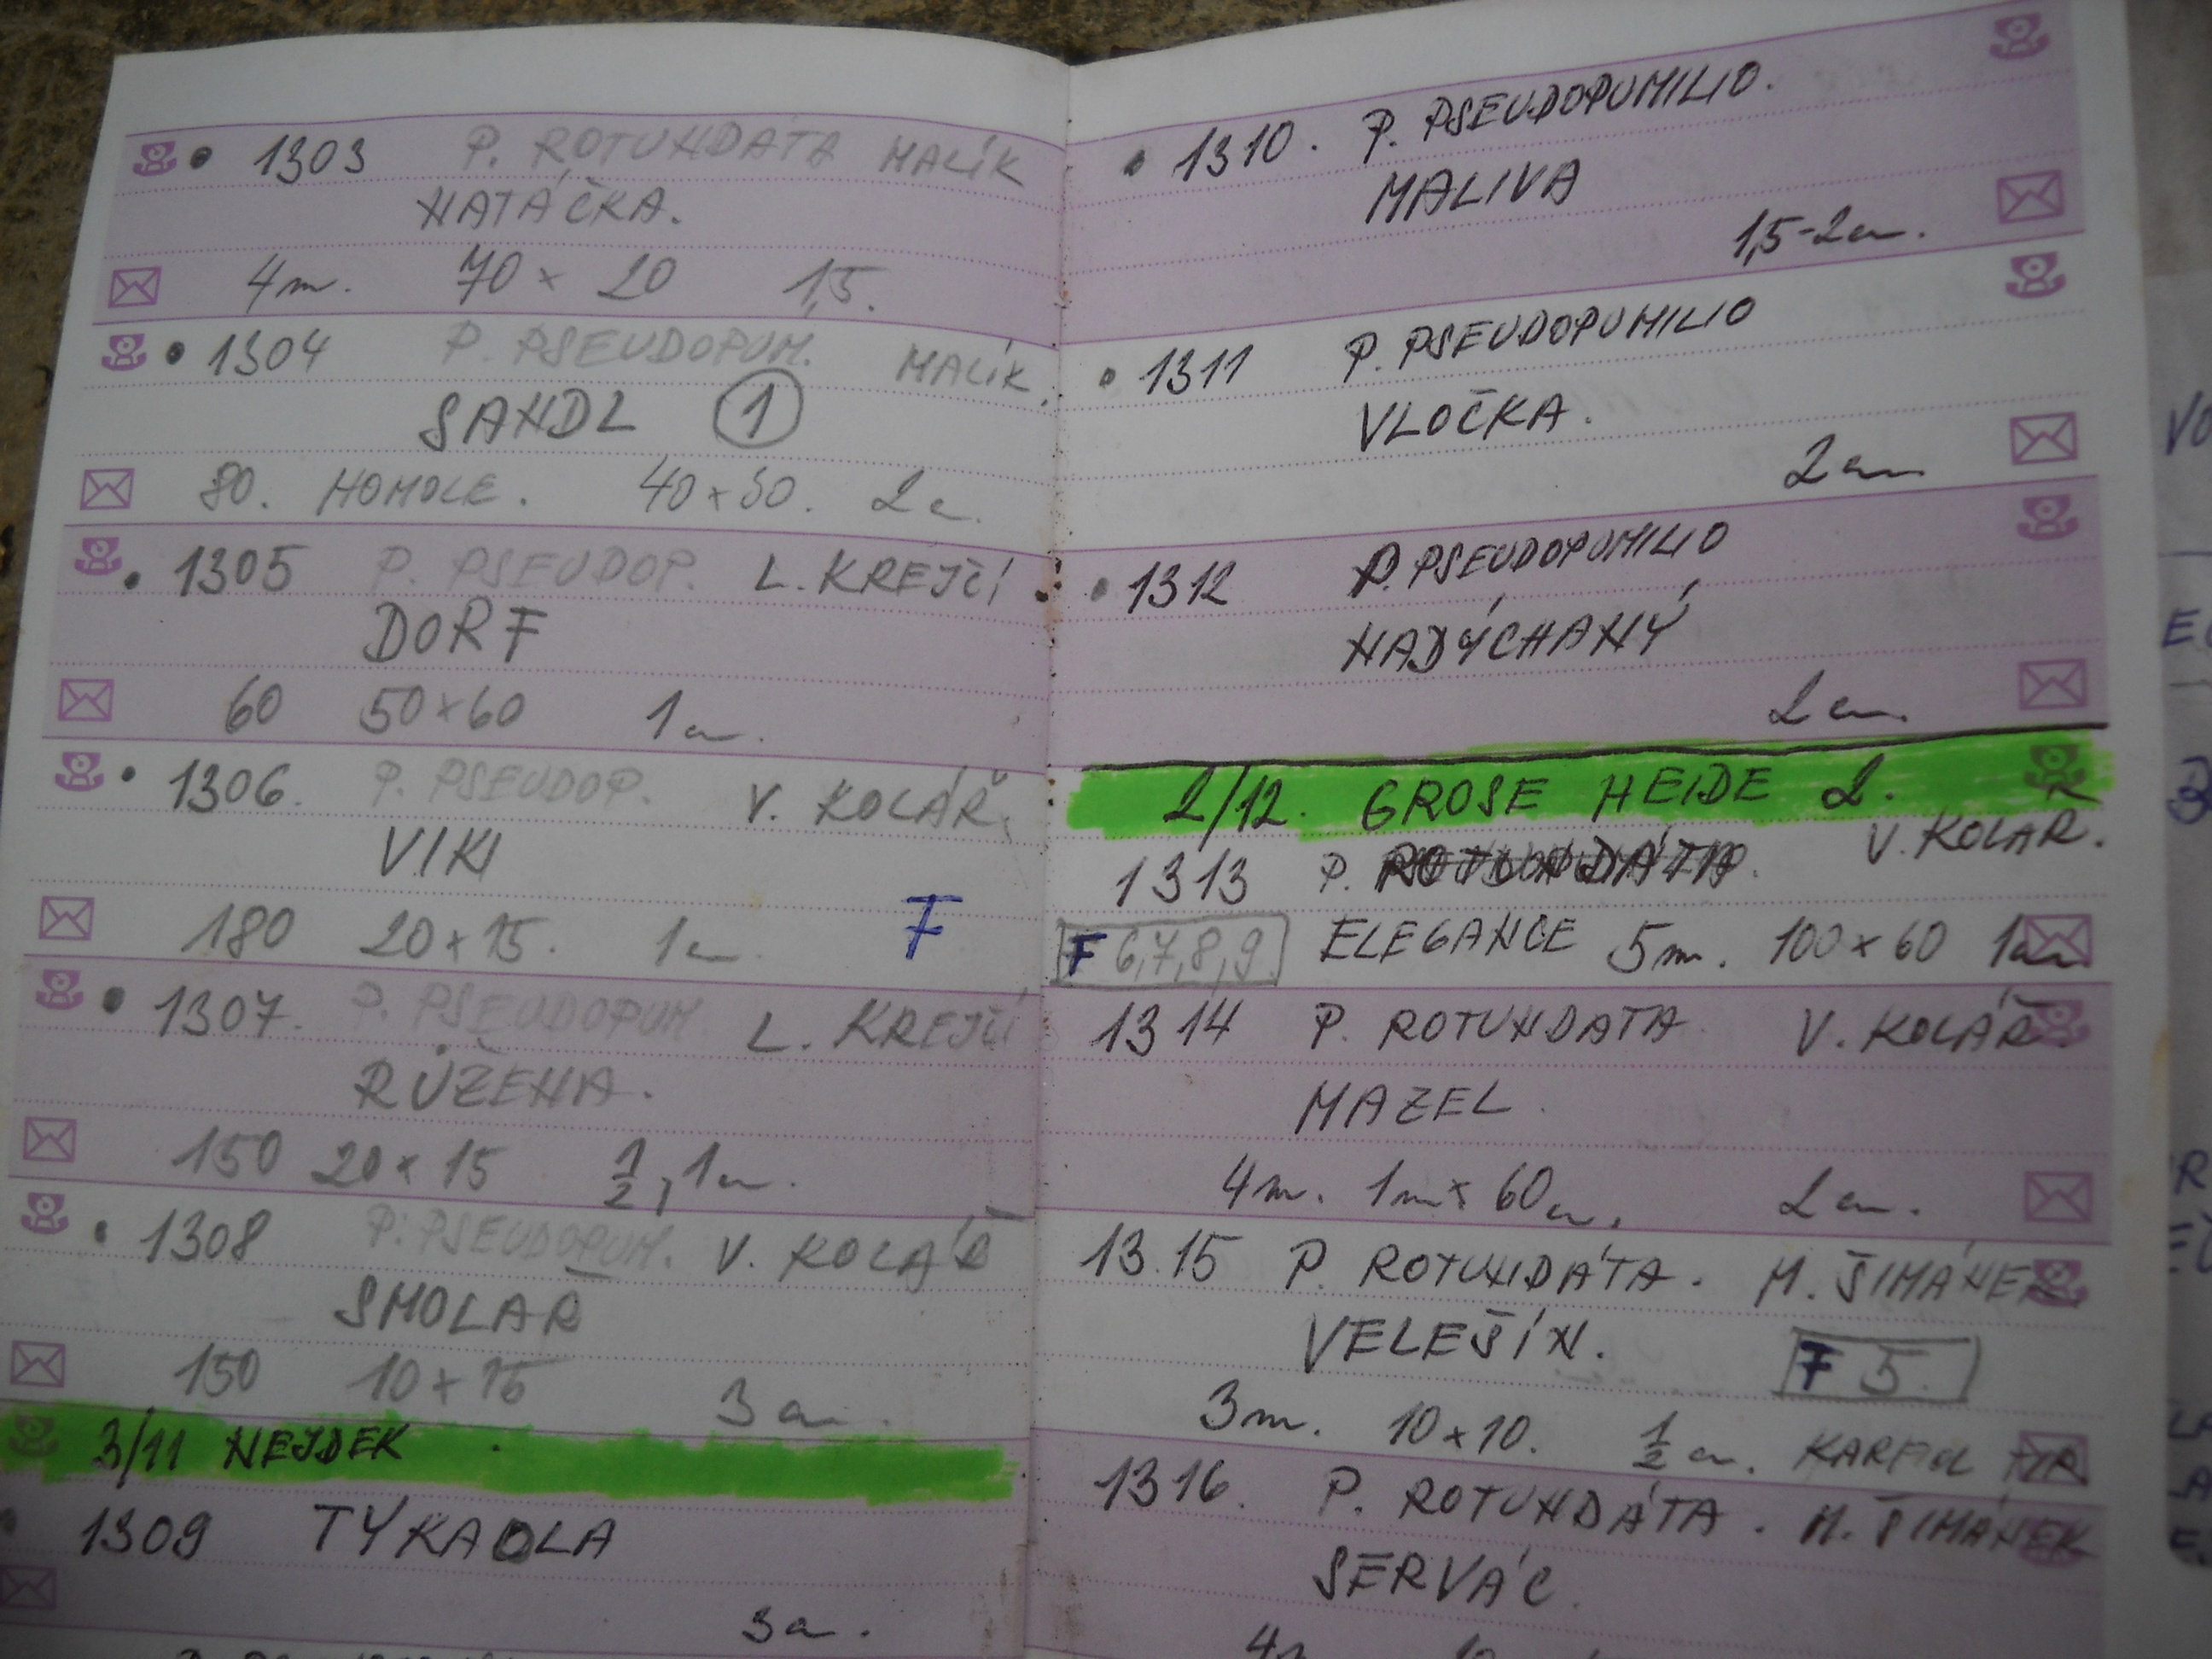 1303 P. ROTUNDATA MALÍK
NATÁČKA.
4m. 70 x 20 1,5.
1304 P. PSEUDOPUM. MALÍK.
SANDL 1
80. HOMOLE. 40 x 50. 2c.
1305 P. PSEUDOP. L. KREJČÍ
DORF
60 50 x 60 1cm.
1306. P. PSEUDOP. V. KOLÁŘ.
VIKI
180 20 x 15. 1cm. F
1307. P. PSEUDOPUM L. KREJČÍ
RŮŽENA.
150 20 x 15 1/2, 1cm.
1308 P. PSEUDOPUM. V. KOLÁŘ
SMOLAŘ
150 10 x 15 3cm.
3/11 NEJDEK
1309 TYKADLA
3cm.
1310. P. PSEUDOPUMILIO.
MALIVA
1,5-2cm.
1311 P. PSEUDOPUMILIO
VLOČKA.
2cm
1312 P. PSEUDOPUMILIO
NADÝCHANÝ
2cm.
2/12. GROSE HEIDE 2.
1313 P. V. KOLAŘ.
F 6,7,8,9. ELEGANCE 5m. 100 x 60 1cm
1314 P. ROTUNDATA V. KOLÁŘ.
MAZEL.
4m. 1m x 60cm. 2cm.
1315 P. ROTUNDÁTA. M. ŠIMÁNEK
VELEŠÍN. F 5.
3m. 10 x 10. 1/2 cm.
1316. P. ROTUNDÁTA. M. ŠIMÁNEK
SERVÁC.